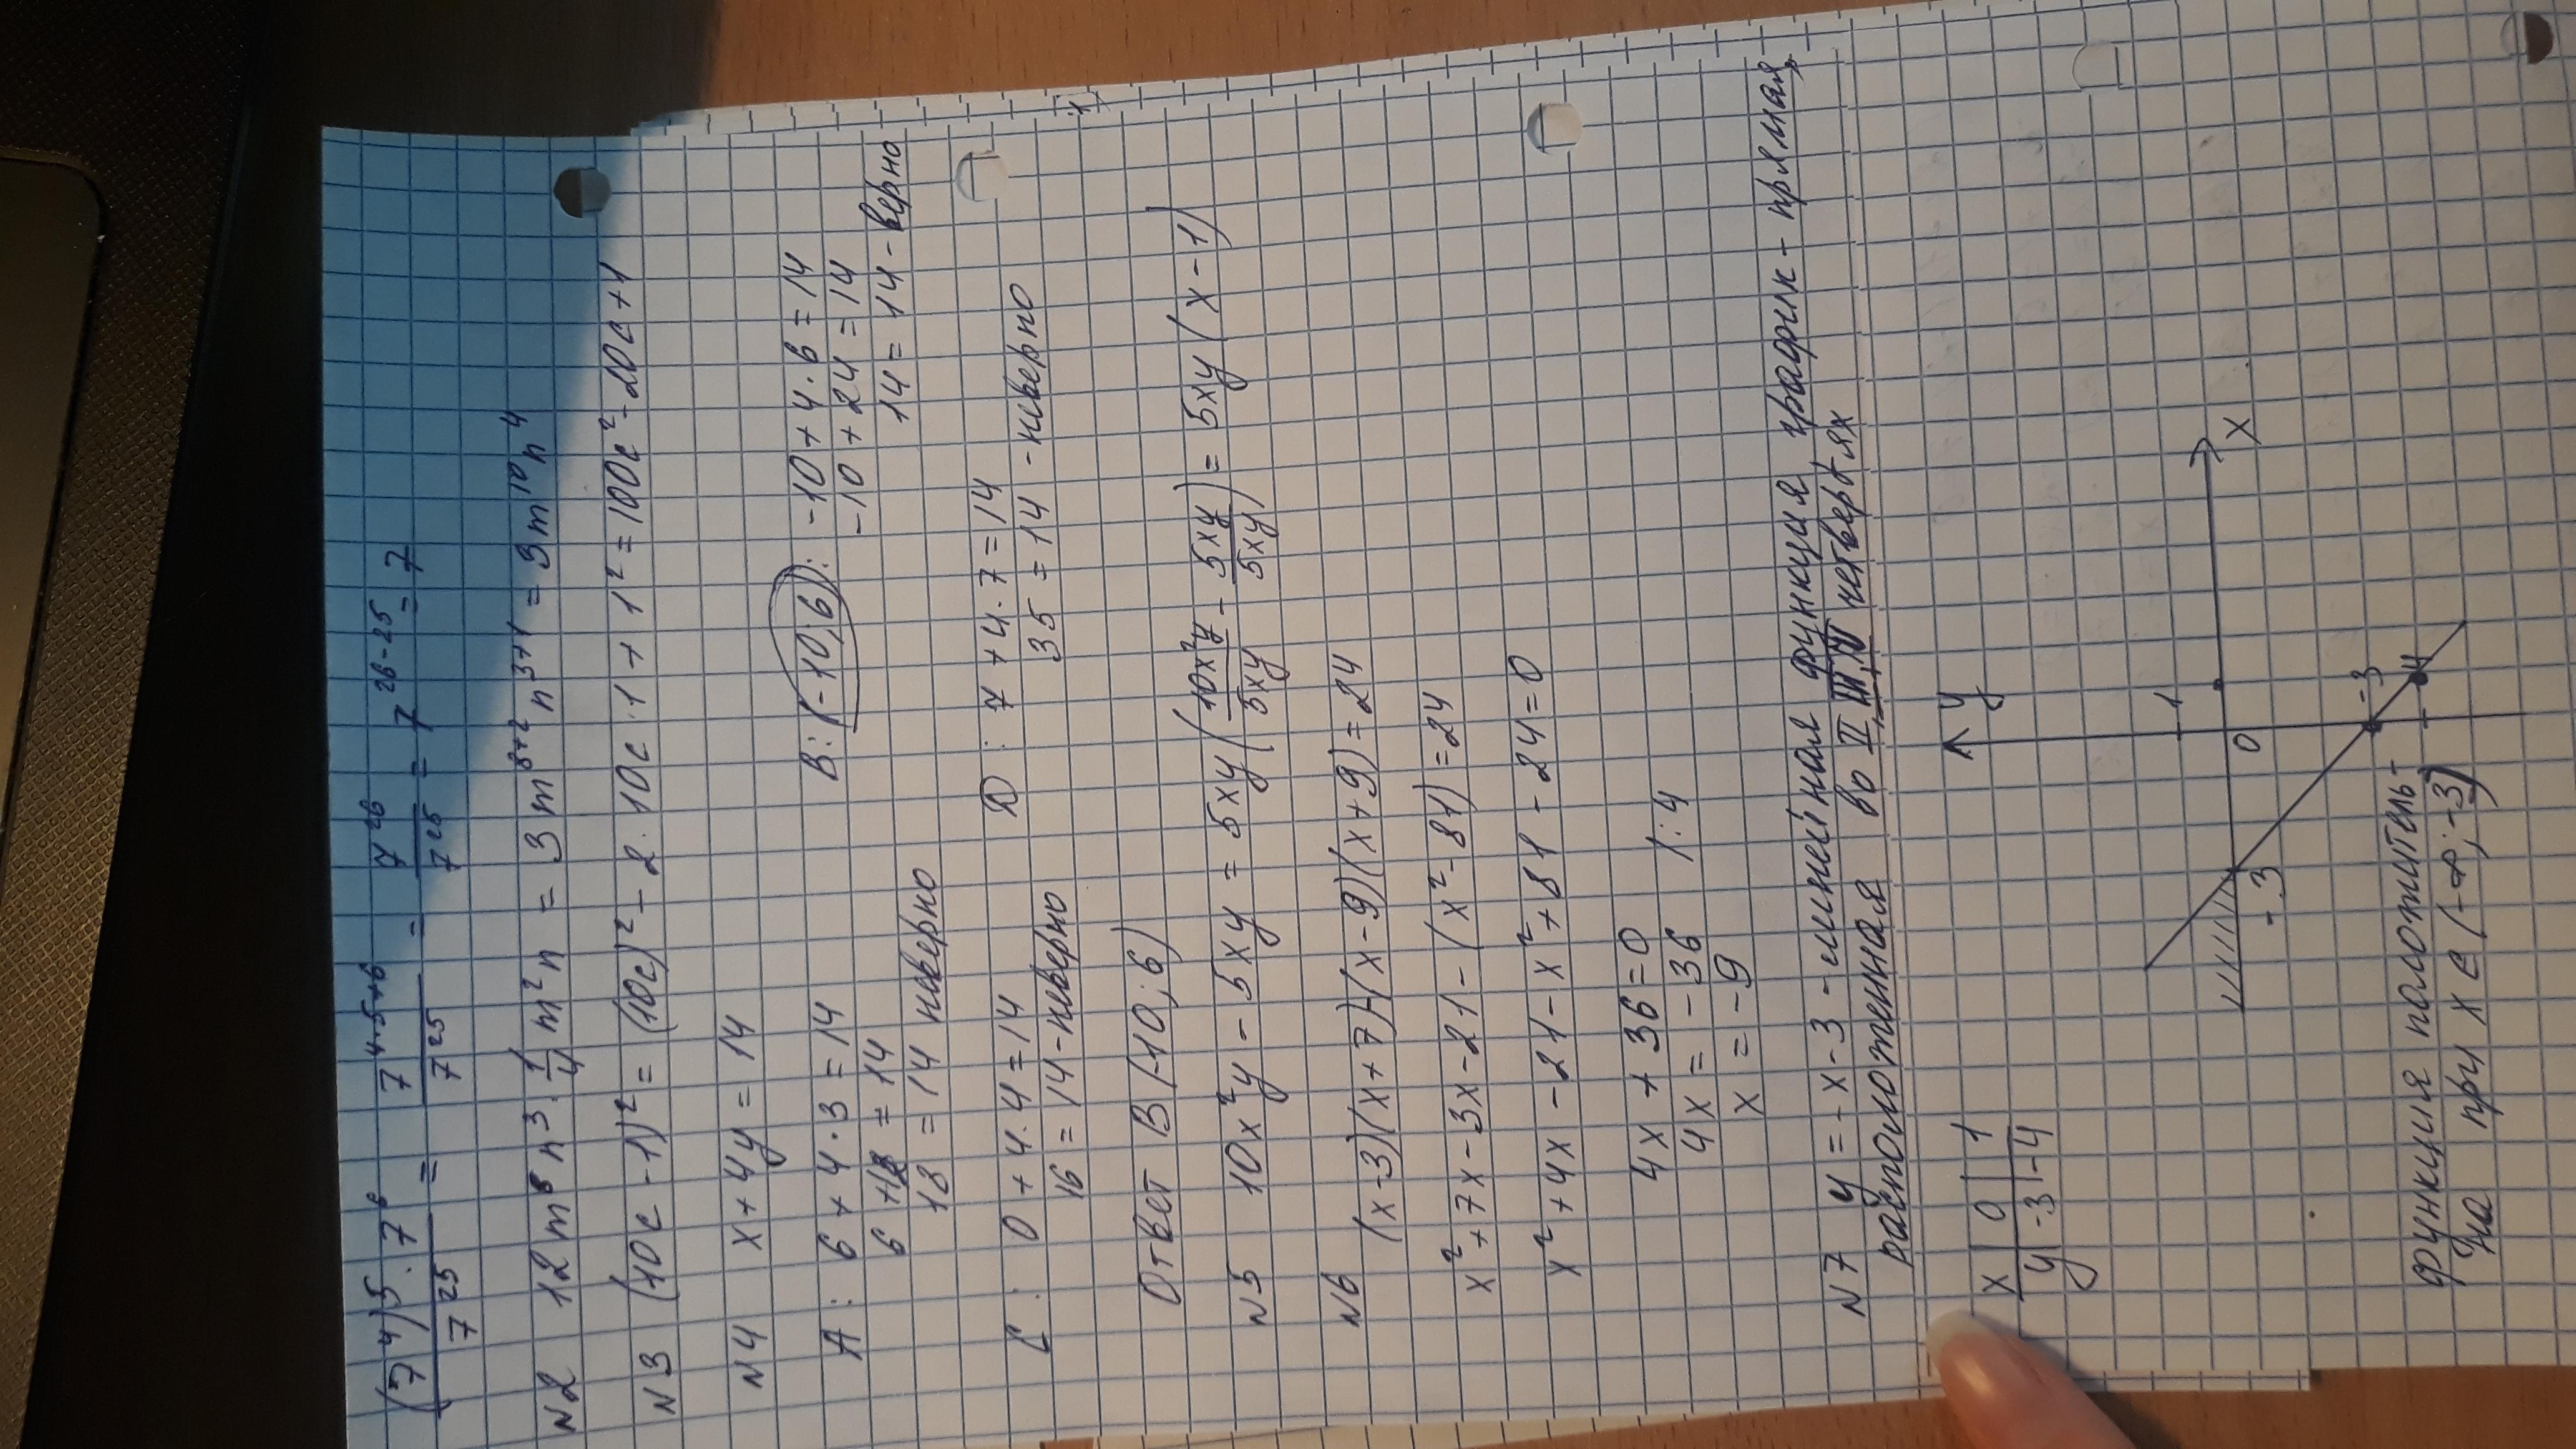 (7⁴)⁵·7⁶ / 7²⁵ = 7^(4·5+6) / 7²⁵ = 7²⁶ / 7²⁵ = 7^(26-25) = 7
N2 12m⁸n³·1/4 m²n = 3m^(8+2) n^(3+1) = 3m¹⁰n⁴
N3 (10c-1)² = (10c)² - 2·10c·1 + 1² = 100c² - 20c + 1
N4 x + 4y = 14
A: 6 + 4·3 = 14
6 + 18 = 14
18 = 14 неверно
B: (-10; 6): -10 + 4·6 = 14
-10 + 24 = 14
14 = 14 - верно
C: 0 + 4·4 = 14
16 = 14 - неверно
D: 7 + 4·7 = 14
35 = 14 - неверно
Ответ B (-10; 6)
N5 10x²y - 5xy = 5xy(10x²y / 5xy - 5xy / 5xy) = 5xy(x-1)
N6 (x-3)(x+7)-(x-9)(x+9)=24
x²+7x-3x-21-(x²-81)=24
x²+4x-21-x²+81-24=0
4x+36=0 /:4
4x=-36
x=-9
N7 y=-x-3 - линейная функция график - прямая,
расположенная во II, III, IV четвертях
x | 0 | 1
y | -3 | -4
y
1
0
x
-3
-3
-4
функция положитель-
на при x ∈ (-∞; -3)